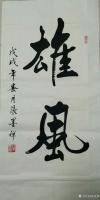 雄風
戊戌年姜月張墨祥